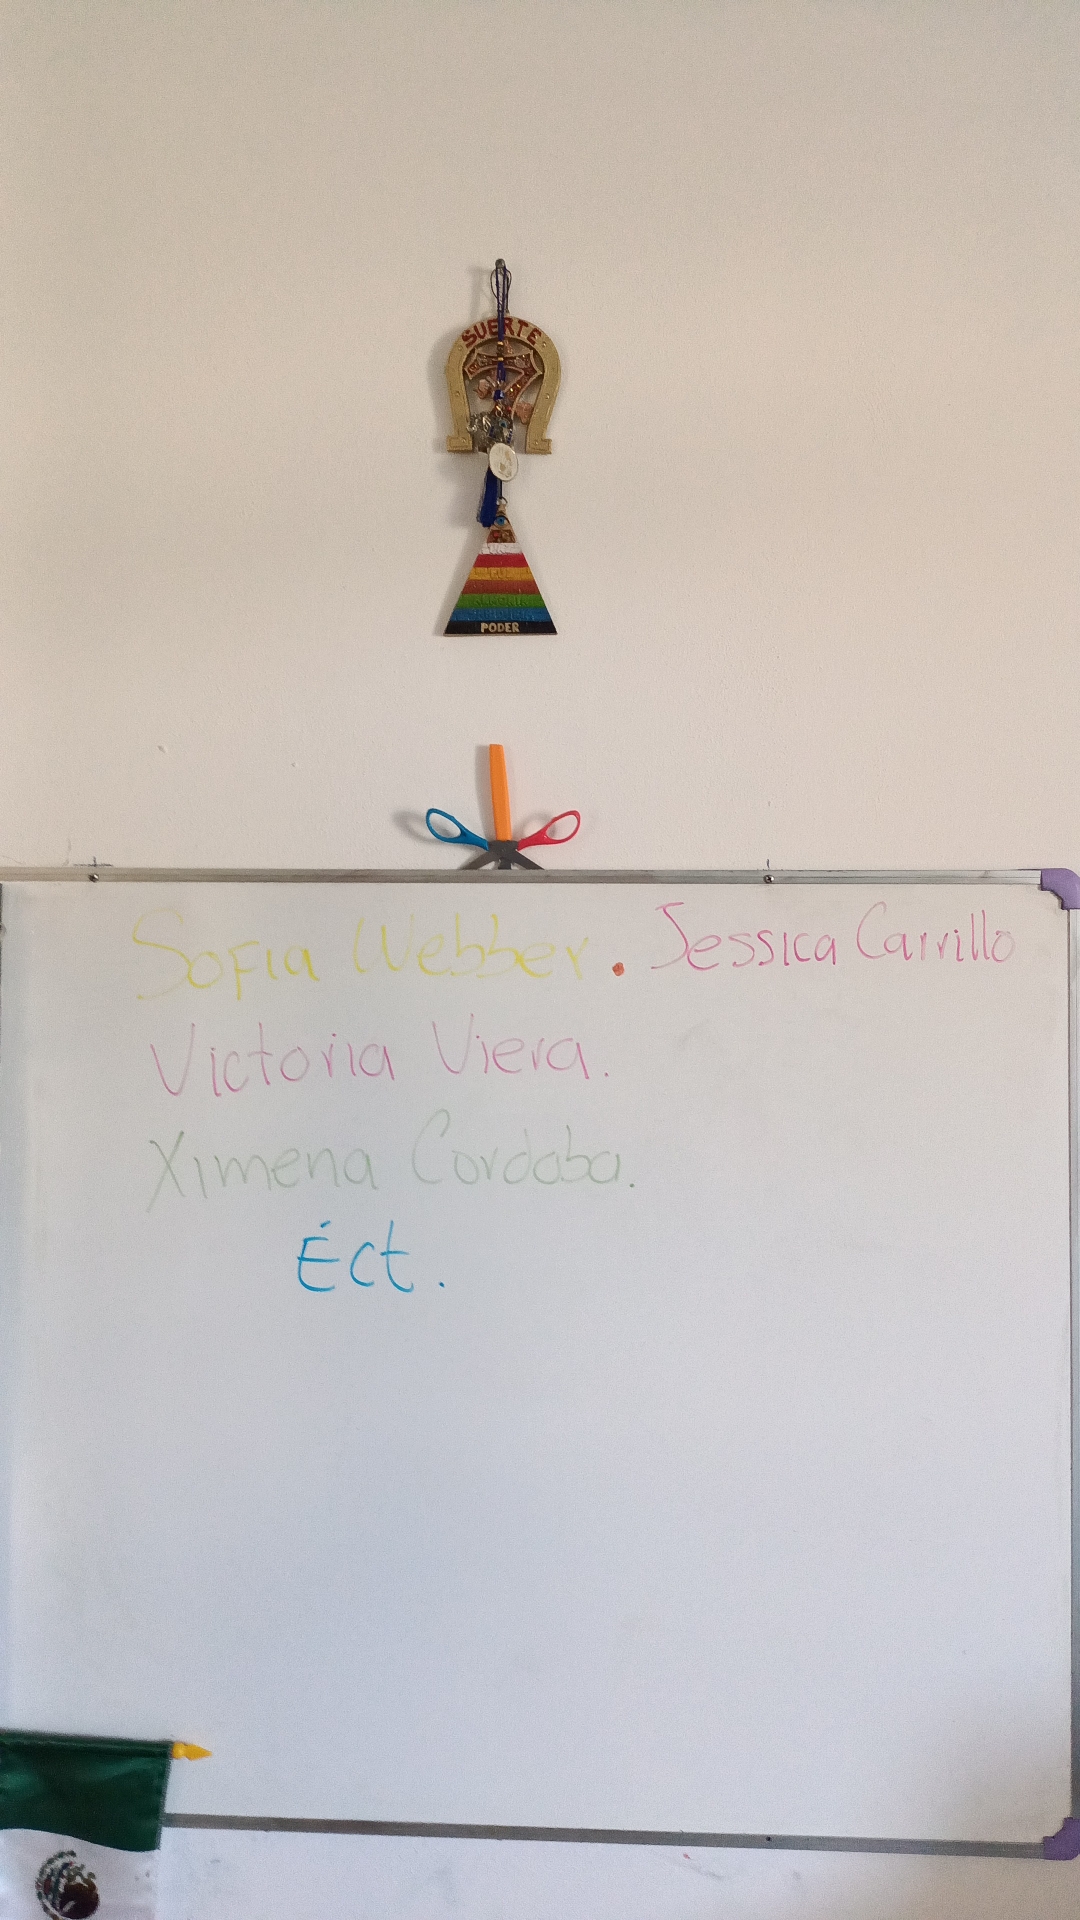 SUERTE
PODER
Sofia Webber. Jessica Carrillo
Victoria Viera.
Ximena Cordoba.
Éct.